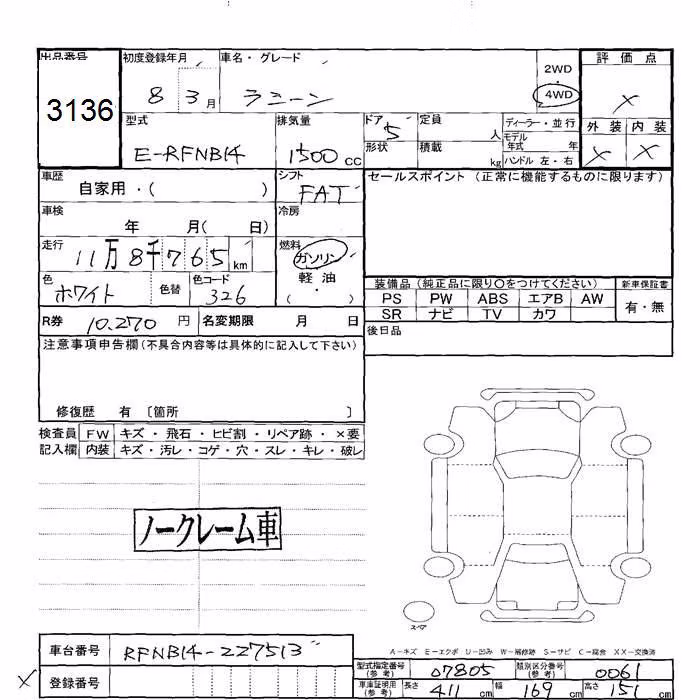 出品番号 初度登録年月 車名・グレード 2WD ・ 4WD 評価点
3136 8 3月 ラシーン ×
型式 排気量 ドア 定員 ディーラー・並行 外装 内装
E-RFNB14 1500 cc 5 人 モデル年式 年 × ×
形状 積載 kg ハンドル 左・右
車歴 シフト セールスポイント (正常に機能するものに限ります)
自家用・( ) FAT
車検 冷房
年 月( 日)
走行 燃料
11万8千765 km ガソリン
色 色替 色コード 軽油
ホワイト 326 ( )
装備品(純正品に限り〇をつけてください) 新車保証書
PS PW ABS エアB AW 有・無
SR ナビ TV カワ
R券 10,270 円 名変期限 月 日
後日品
注意事項申告欄(不具合内容等は具体的に記入して下さい)
修復歴 有 〔箇所 〕
検査員 FW キズ・飛石・ヒビ割・リペア跡・×要
記入欄 内装 キズ・汚レ・コゲ・穴・スレ・キレ・破レ
ノークレーム車
スペア
A-キズ E-エクボ U-凹み W-補修跡 S-サビ C-腐食 XX-交換済
車台番号 RFNB14-227513
型式指定番号(参考) 07805 類別区分番号(参考) 0061
× 登録番号
車庫証明用(参考) 長さ 411 cm 幅 169 cm 高さ 151 cm